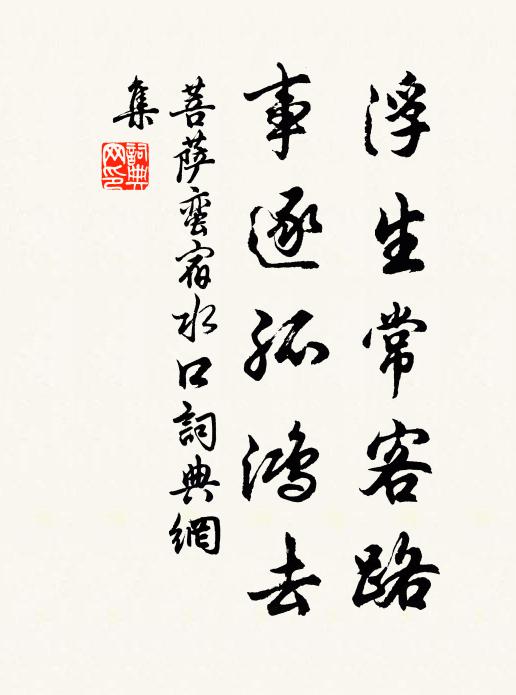 浮生常客路
事逐孤鸿去
菩萨蛮宿水口詞典網
集
詞典
网印